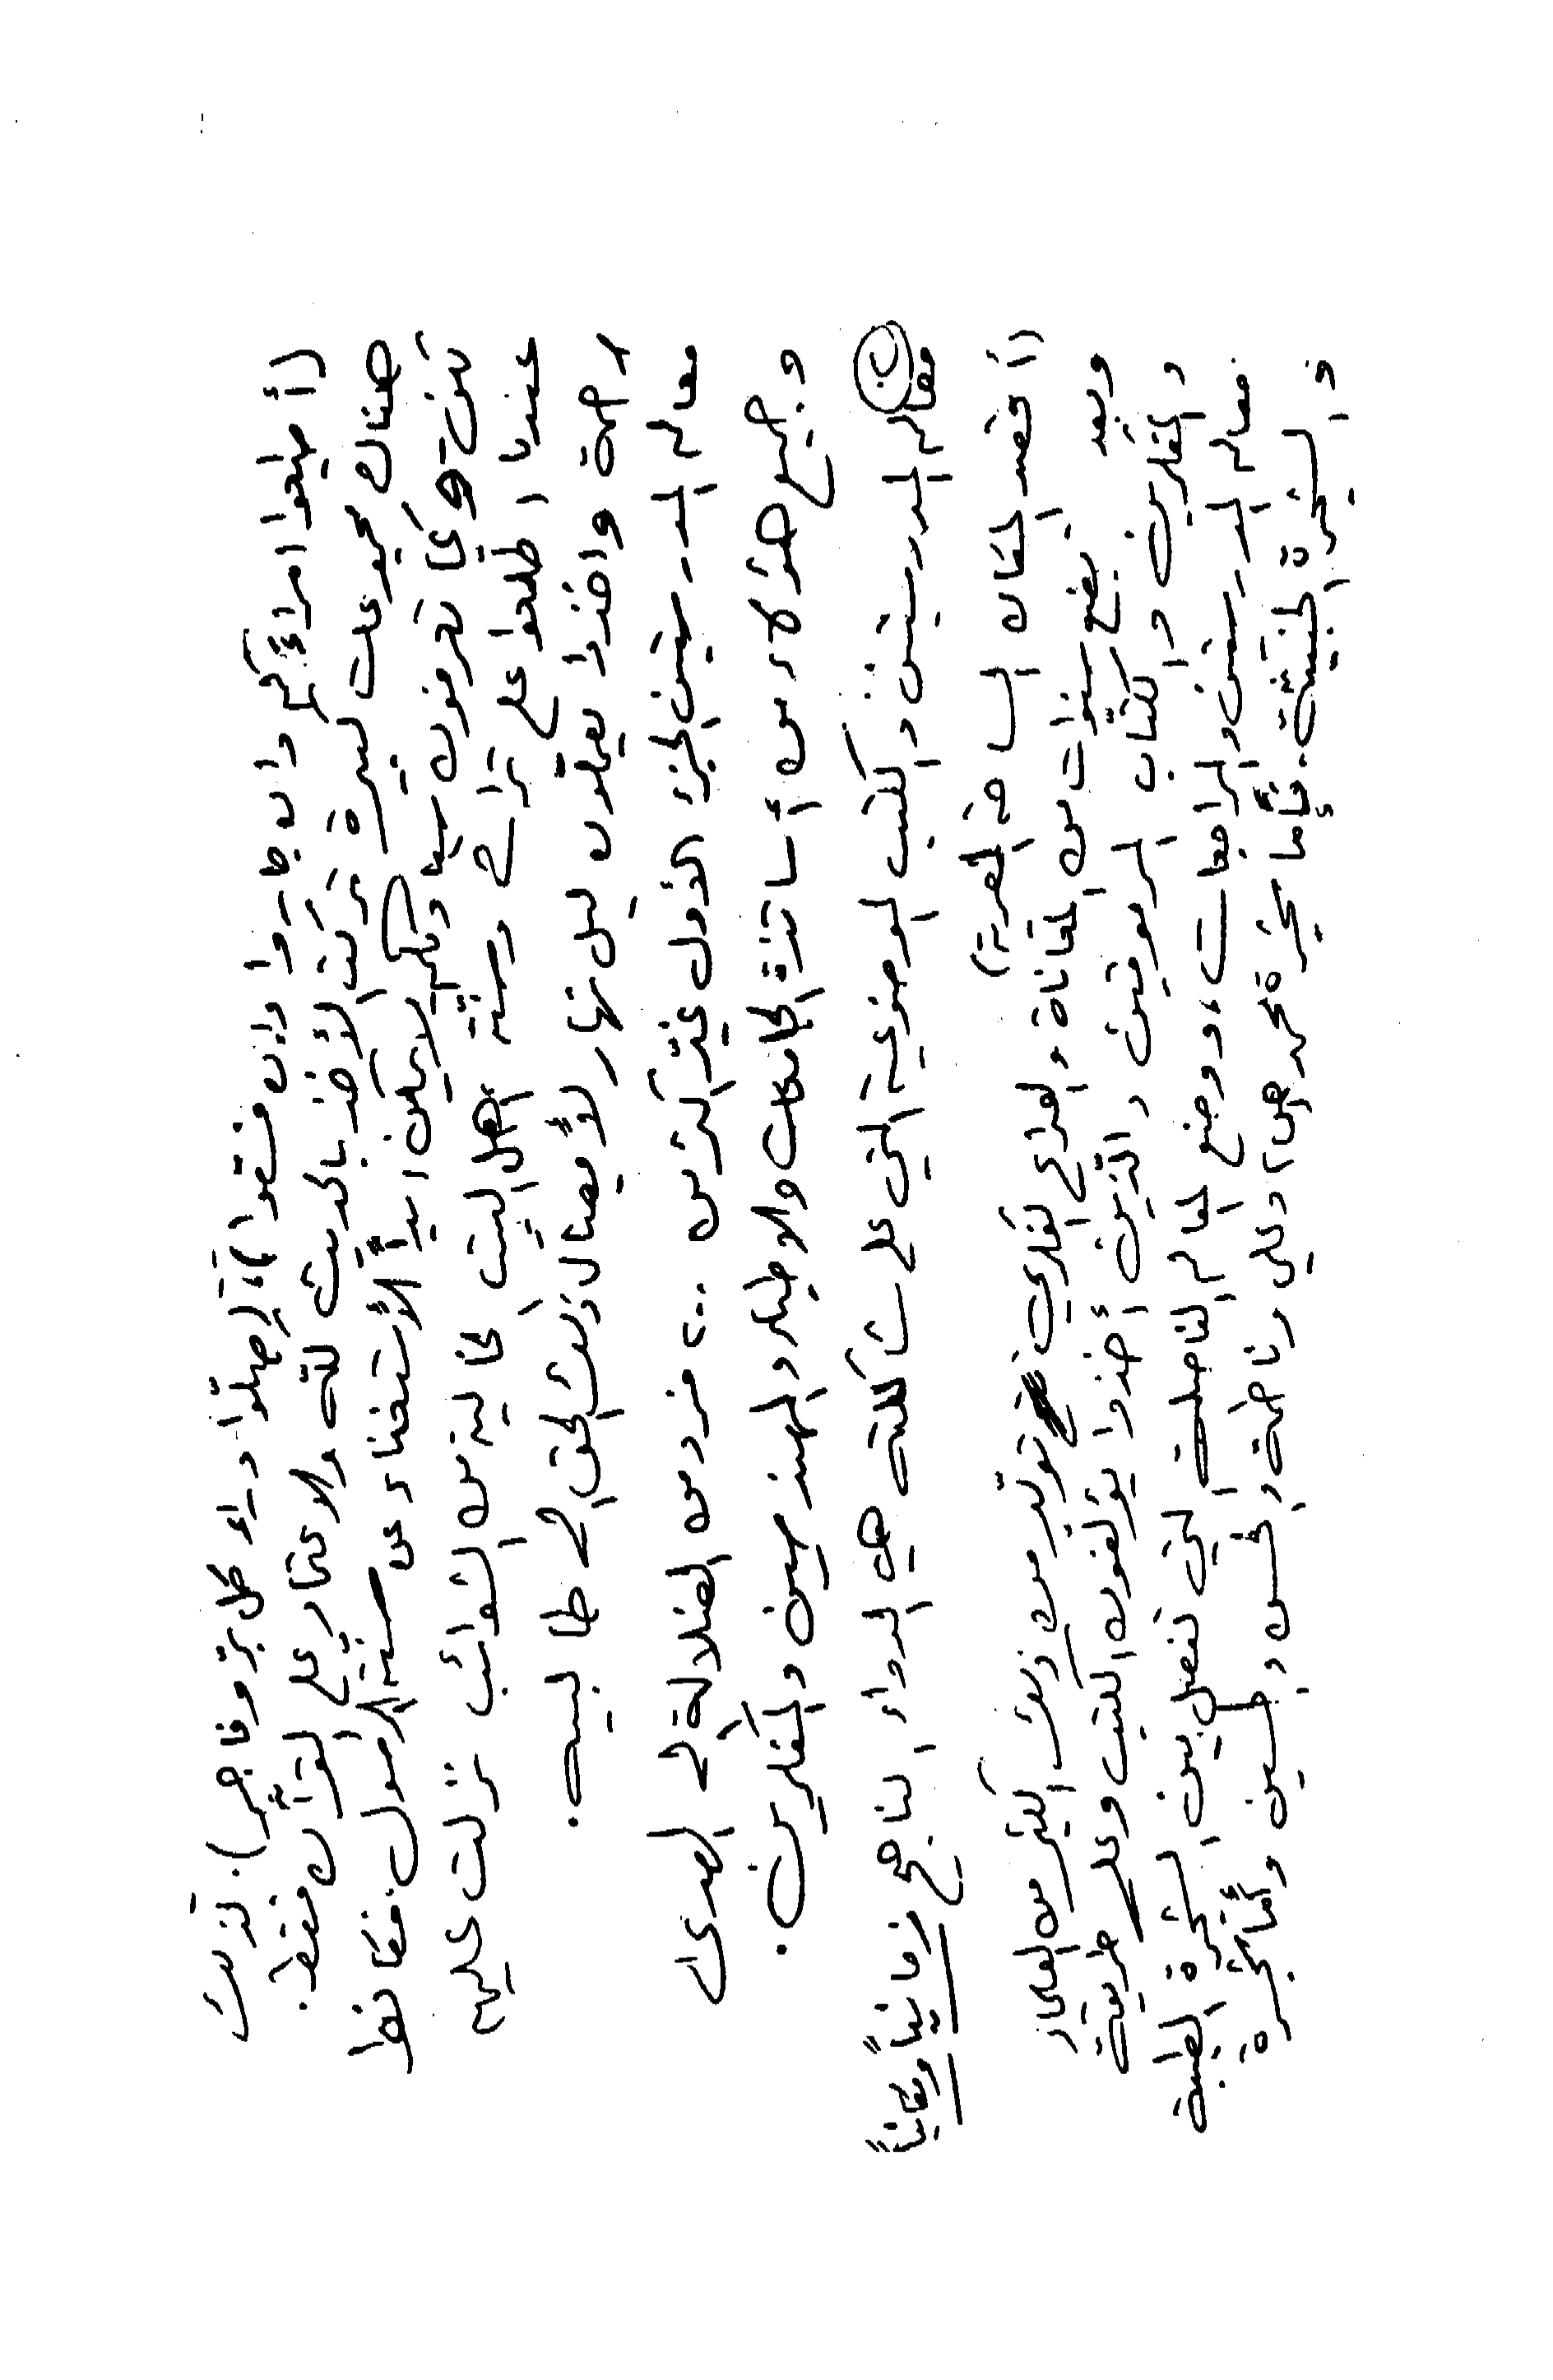 (أطيعوا امراءكم وان جاروا وإن فسقوا)، (صلّوا وراء كل برّ وفاجر). لذلك
هناك مجموعات كبيرة تركت الأخذ بالحديث كله والاعتماد على القرآن فقط.
لكن وكما تعرفون سيادتكم لا يمكن ابداً الأستغناء عن سنة الرسول.
عندما اطلعوا على تراث وسنّة اهل البيت الخالية من الشوائب نزلت عليهم
رحمة واخذوا يعملون ليل نهار لأيصال ذلك الحق الى طالبيه.
معالم المدرستين الجزء الأول غيّر اكثر من ٢٠٠ فرد من الضلالة الى الهدى
وجميع هؤلاء من أساتذة الجامعات والاطباء والمهندسين والمفكرين.
معالم المدرستين والكتب الموضوعية التي على شاكلته هي الدواء الناجح زمانياً ومكانياً
(أقصد الساحة المصرية)
وبعد بضع سنوات من المعاناة والصراع الفكري تولّد من ذلك الكثير من العلماء
والمفكرين والكتّاب المرموقين والذين أخذوا يؤلفون الكتب وعلى طريقة
معالم المدرستين والمراجعات، ووضع المعالم الفاصلة التي تفصل بين الشجرة الطيبة
والشجرة الخبيثة. فإما شجرة محمد (ص) وعلي وفاطمة والحسن والحسين وأما شجرة